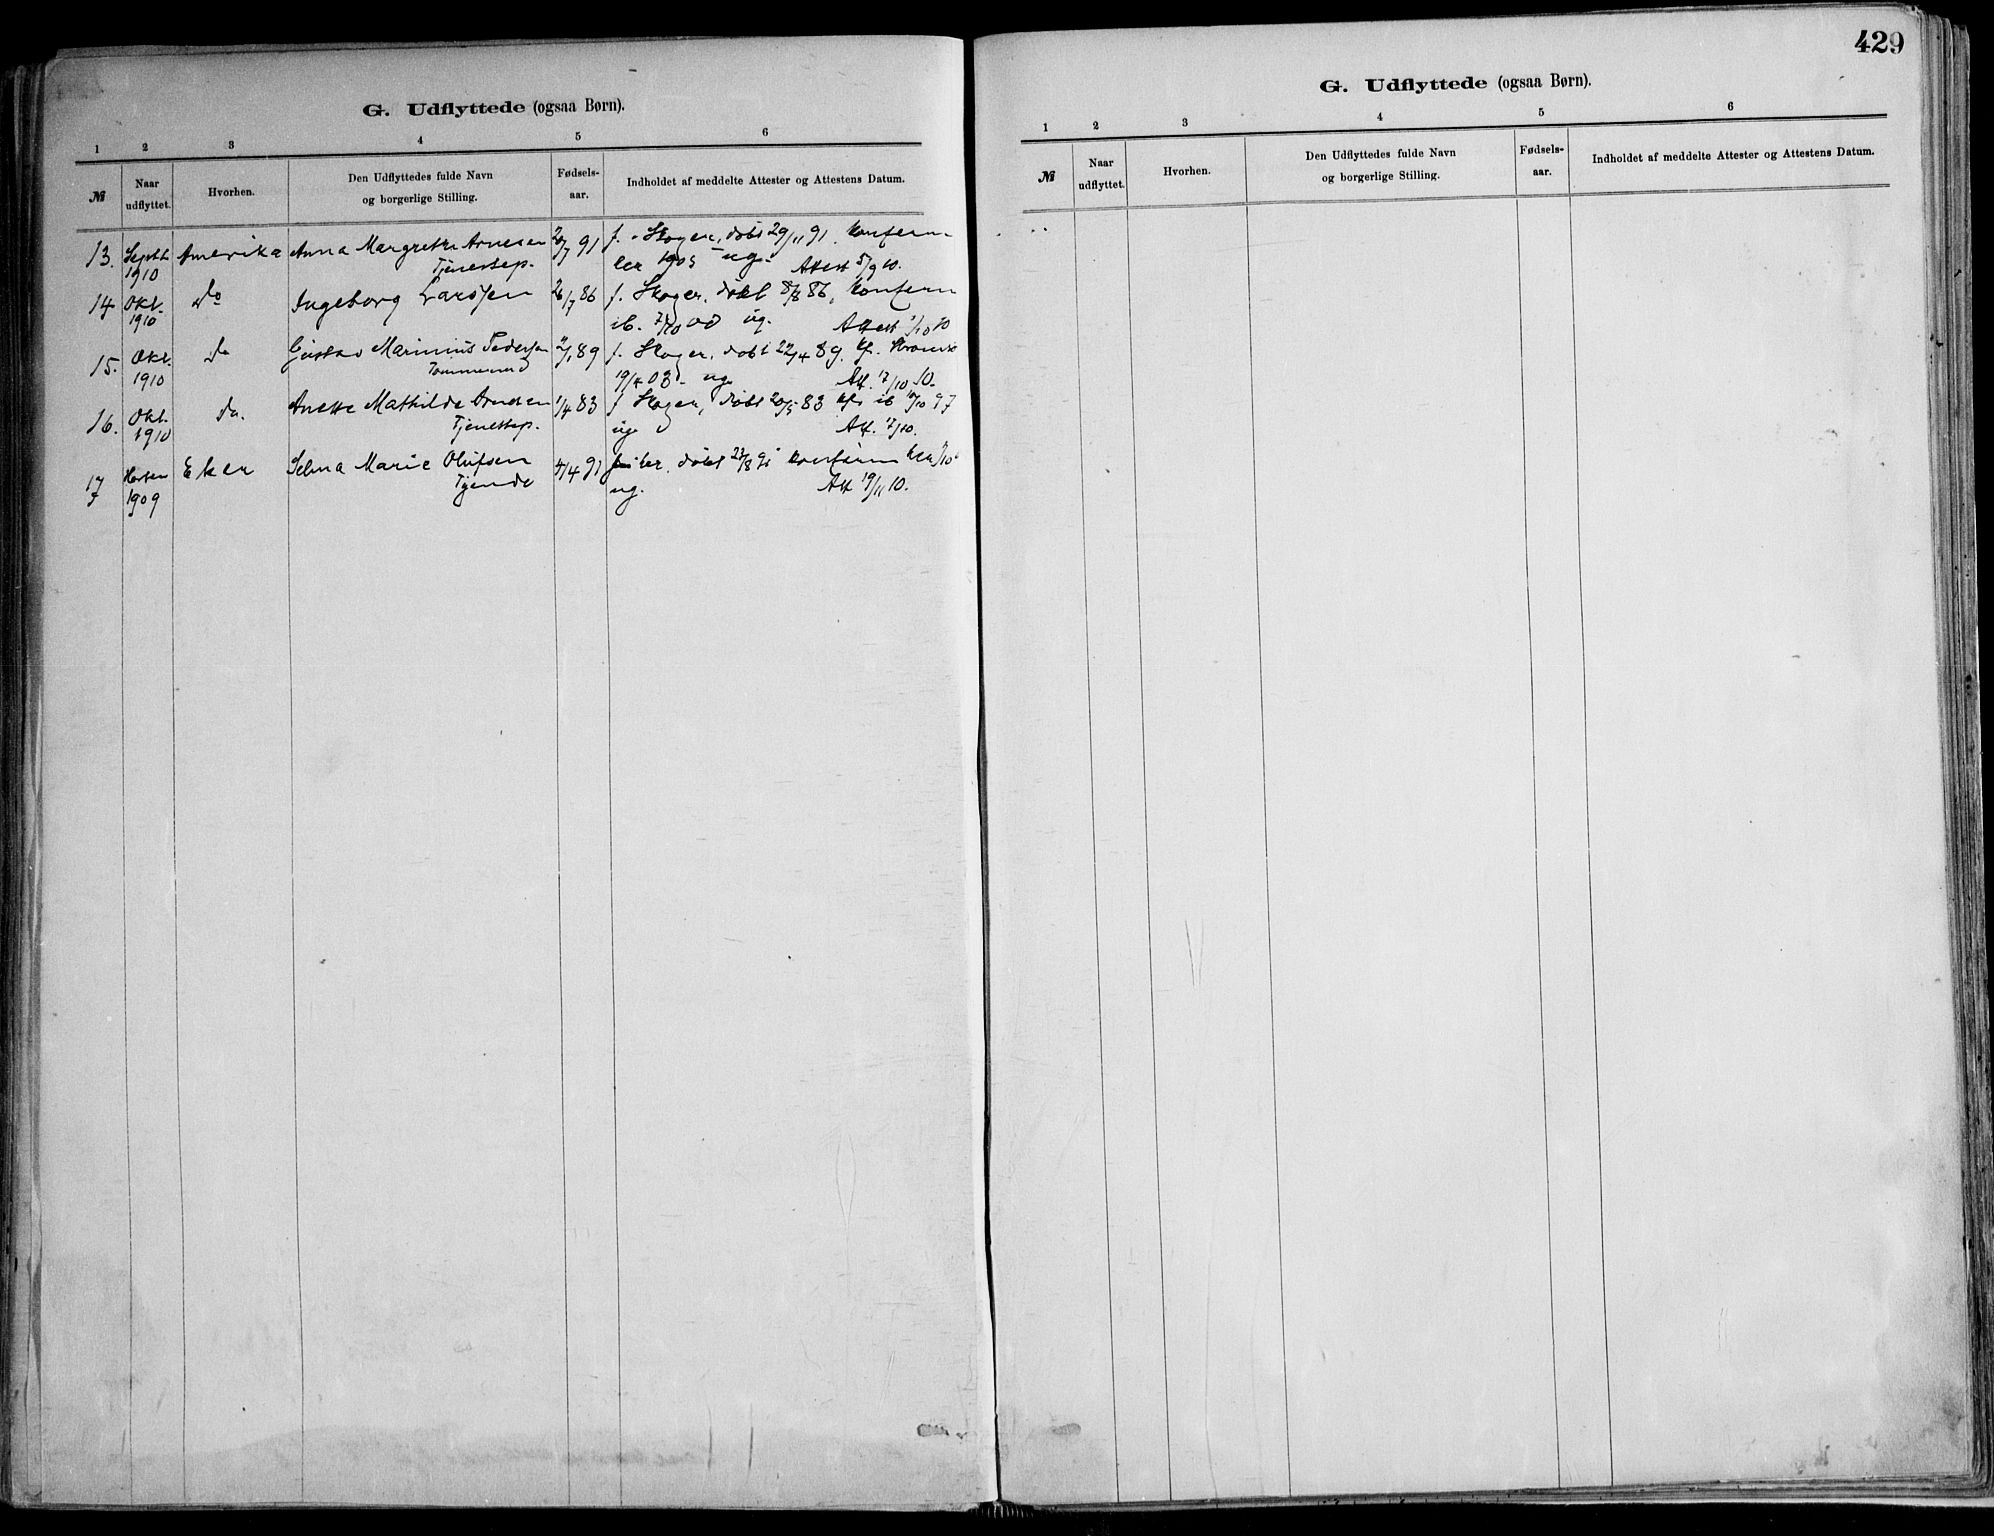 G. Udflyttede (ogsaa Børn).
1 2 3 4 5 6
№ Naar udflyttet. Hvorhen. Den Udflyttedes fulde Navn og borgerlige Stilling. Fødsels-aar. Indholdet af meddelte Attester og Attestens Datum.
13. Septb. Amerika Anna Margrethe Arnesen 20/7 91 f. Skoger, døbt 29/11 91. Konferm
1910 Tjenestep. 1905 ug. Attest 5/9 10.
14 Okt. do Ingeborg Larssen 26/7 86 f. Skoger. døbt 8/8 86, Konferm
1910 ib. 7/10 00 ug. Attest 1/10 10
15. Okt. do Gustav Marinius Pedersen 2/1 89 f. Skoger, døbt 22/4 89. kf.
1910 Tømmermd 19/4 03 - ug. Att. 17/10 10.
16. Okt. do. Anette Mathilde Arnesen 1/4 83 f Skoger, døbt 20/5 83 kf. ib 10/10 97
1910 Tjenestep. ug Att. 17/10.
17 Høsten Eker Selma Marie Olufsen 4/4 91 døbt 23/8 91 konferm
1909 Tjende ug. Att 19/11 10.
429
G. Udflyttede (ogsaa Børn).
1 2 3 4 5 6
№ Naar udflyttet. Hvorhen. Den Udflyttedes fulde Navn og borgerlige Stilling. Fødsels-aar. Indholdet af meddelte Attester og Attestens Datum.